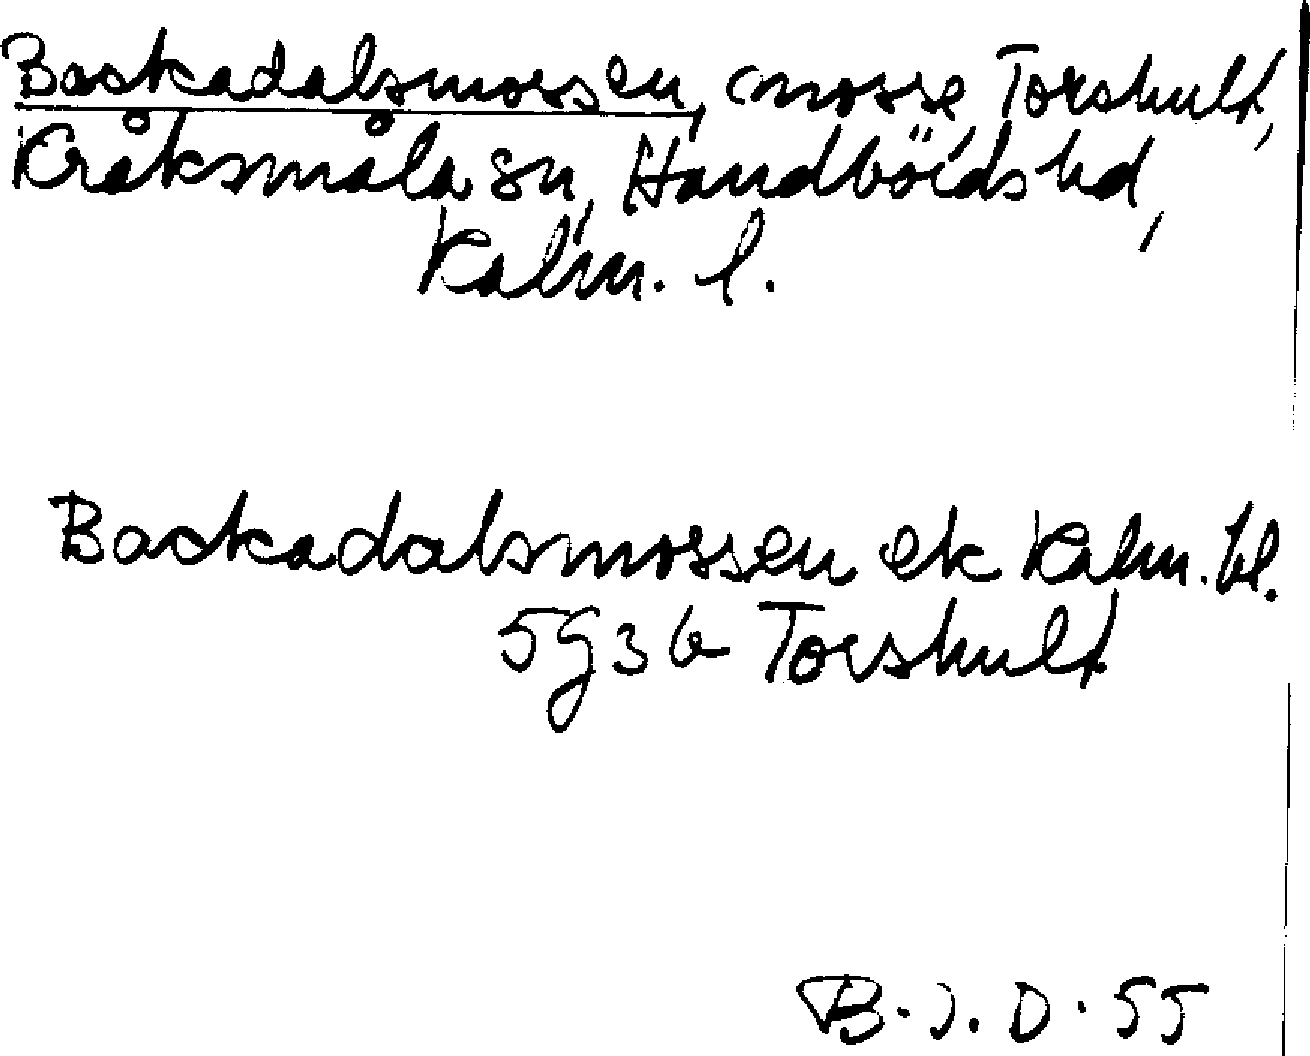 Backadalsmossen, mosse, Torshult,
Kråksmåla sn, Handbörds hd,
Kalm. l.
Backadalsmossen ek Kalm. bl.
5g3b Torshult
B. J. D. 55